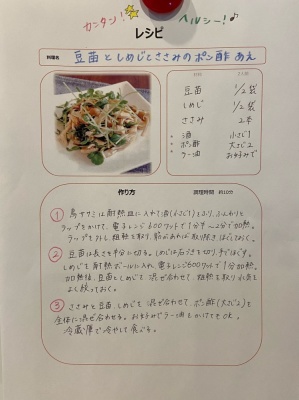 カンタン！ ヘルシー！♪
レシピ
料理名 豆苗としめじとささみのポン酢あえ
材料 2人前
豆苗 1/2袋
しめじ 1/2袋
ささみ 2本
* 酒 小さじ1
* ポン酢 大さじ2
* ラー油 お好みで
作り方 調理時間 約10分
① 鳥ササミは耐熱皿に入れて酒(小さじ1)をふり、ふんわりと
ラップをかけて、電子レンジ600ワットで1分半〜2分で加熱。
ラップを外し、粗熱を取り、筋があれば取り除きほぐしておく。
② 豆苗は長さを半分に切る。しめじは石づきを切り、手でほぐす。
しめじを耐熱ボールに入れ、電子レンジ600ワットで1分加熱。
加熱後、豆苗としめじを混ぜ合わせて、粗熱を取り水気を
よく絞っておく。
③ ささみと豆苗、しめじを混ぜ合わせて、ポン酢(大さじ2)を
全体に混ぜ合わせる。お好みでラー油をかけてもOK。
冷蔵庫で冷やして食べる。